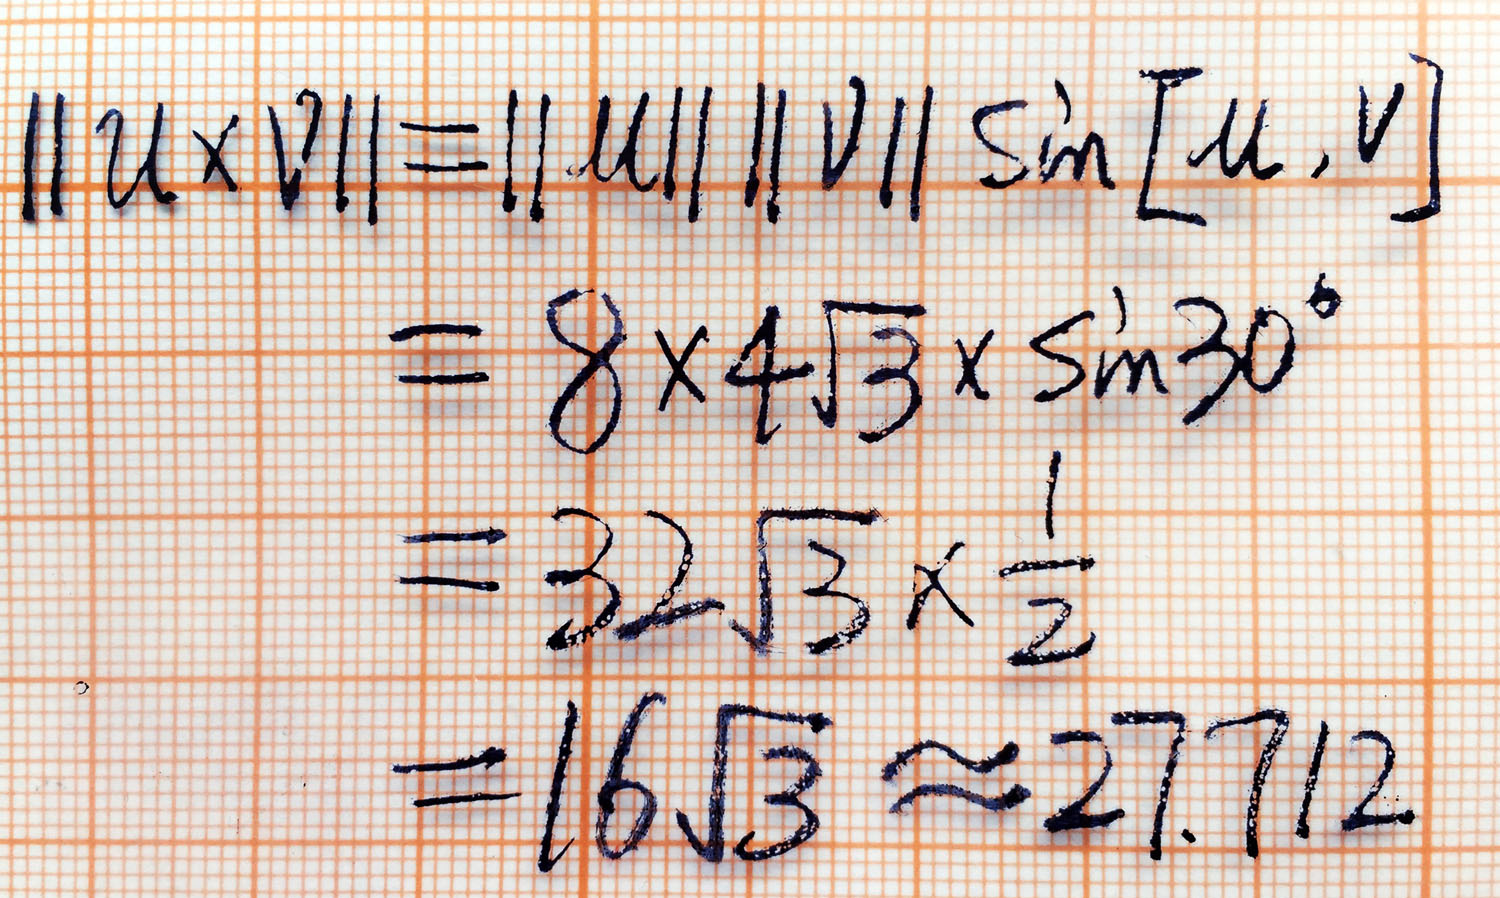 ||u×v||=||u|| ||v|| sin[u,v]
=8×4√3×sin30°
=32√3×1/2
=16√3≈27.712